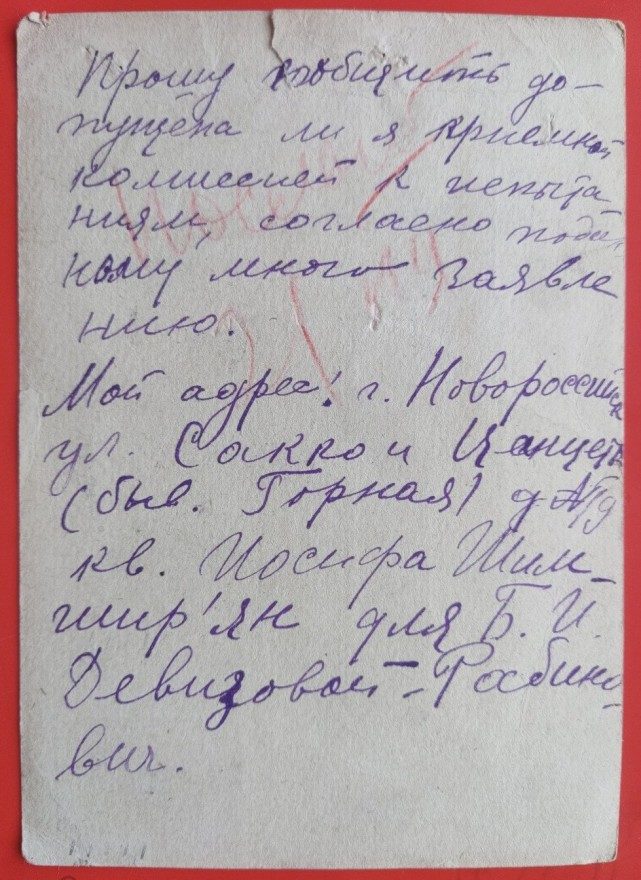 Прошу сообщить до-
пущена ли я приемной
комиссией к испыта
ниям, согласно подан
ному мною заявле
нию.
Мой адрес: г. Новороссийск
ул. Сакко и Ванцетти
(быв. Горная) д
кв. Иосифа Шим-
шир'ян для Б. И.
Девизовой-Рабино-
вич.